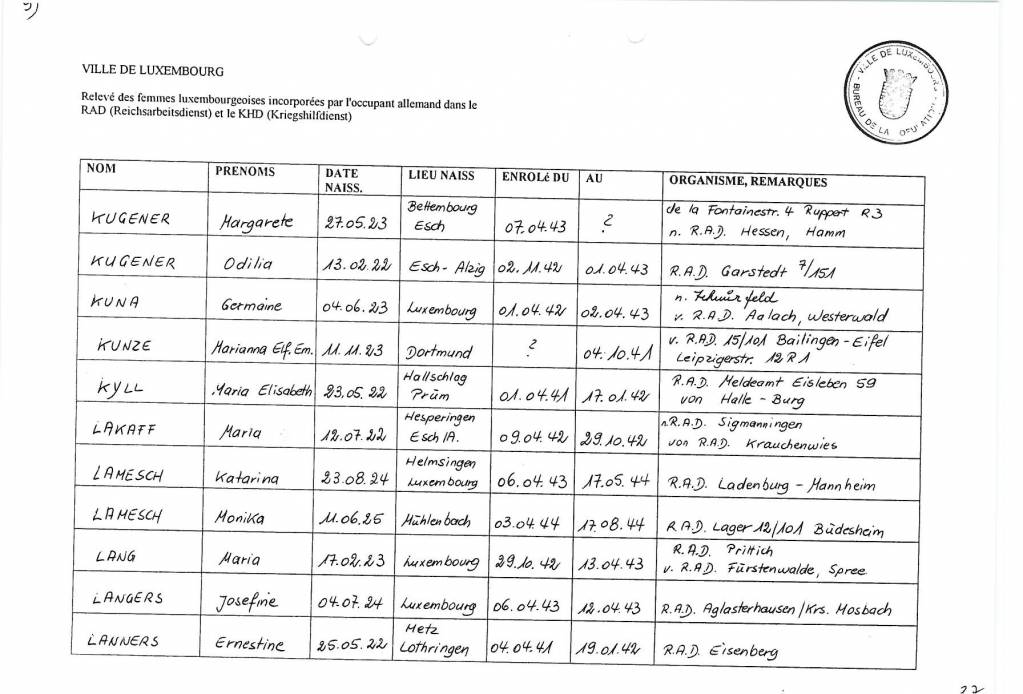 VILLE DE LUXEMBOURG
Relevé des femmes luxembourgeoises incorporées par l'occupant allemand dans le
RAD (Reichsarbeitsdienst) et le KHD (Kriegshilfdienst)
VILLE DE LUXEMBOURG
BUREAU DE LA POPULATION
NOM PRENOMS DATE NAISS. LIEU NAISS ENROLé DU AU ORGANISME, REMARQUES
KUGENER Margarete 27.05.23 Bettembourg Esch 07.04.43 ? de la Fontainestr. 4 Ruppert R3
n. R.A.D. Hessen, Hamm
KUGENER Odilia 13.02.22 Esch-Alzig 02.11.42 01.04.43 R.A.D. Garstedt 7/151
KUNA Germaine 04.06.23 Luxembourg 01.04.42 02.04.43 n.
v. R.A.D. Aalach, Westerwald
KUNZE Marianna Elf. Em. 11.11.23 Dortmund ? 04.10.41 v. R.A.D. 15/101 Bailingen-Eifel
Leipzigerstr. 12 R1
KYLL Maria Elisabeth 23.05.22 Hallschlag Prüm 01.04.41 17.01.42 R.A.D. Meldeamt Eisleben 59
von Halle-Burg
LAKAFF Maria 12.07.22 Hesperingen Esch/A. 09.04.42 29.10.42 n.R.A.D. Sigmanningen
von R.A.D. Krauchenwies
LAMESCH Katarina 23.08.24 Helmsingen Luxembourg 06.04.43 17.05.44 R.A.D. Ladenburg-Mannheim
LAMESCH Monika 11.06.25 Mühlenbach 03.04.44 17.08.44 R.A.D. Lager 12/101 Büdesheim
LANG Maria 17.02.23 Luxembourg 29.10.42 13.04.43 R.A.D. Prittich
v. R.A.D. Fürstenwalde, Spree
LANGERS Josefine 04.07.24 Luxembourg 06.04.43 12.04.43 R.A.D. Aglasterhausen/Krs. Mosbach
LANNERS Ernestine 25.05.22 Metz Lothringen 04.04.41 19.01.42 R.A.D. Eisenberg